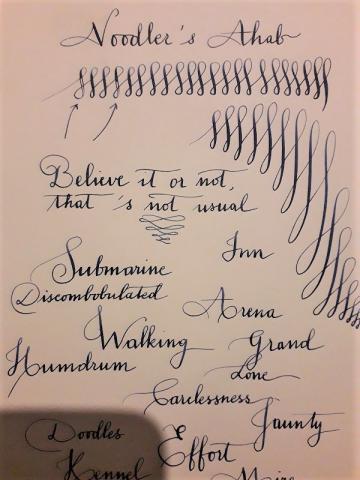 Noodler's Ahab
Believe it or not,
that's not usual
Inn
Submarine
Discombobulated
Arena
Walking
Grand
Humdrum
Love
Carelessness
Jaunty
Doodles
Effort
Kennel